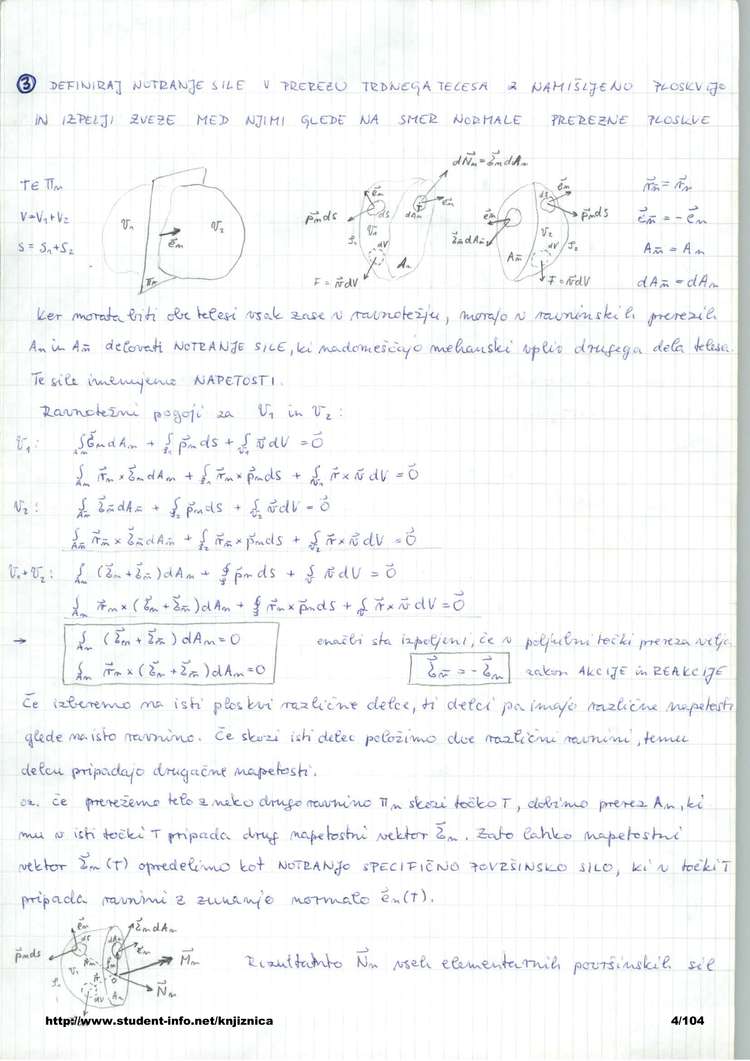 3 DEFINIRAJ NOTRANJE SILE V PREREZU TRDNEGA TELESA Z NAMIŠLJENO PLOSKVIJO
IN IZPELJI ZVEZE MED NJIMI GLEDE NA SMER NORMALE PREREZNE PLOSKVE
T ∈ Πn
V = V1 + V2
S = S1 + S2
V1 V2 e⃗n Πn
dN⃗n = σ⃗n dAn
p⃗n dS e⃗n dS dAn e⃗n V1 An F = v⃗ dV
e⃗n dS p⃗n dS e⃗n̄ σ⃗n̄ dAn̄ V2 An̄ dV F = v⃗ dV
r⃗n̄ = r⃗n
e⃗n̄ = - e⃗n
An̄ = An
dAn̄ = dAn
Ker morata biti obe telesi vsak zase v ravnotežju, morajo v ravninskih prerezih
An in An̄ delovati NOTRANJE SILE, ki nadomeščajo mehanski vpliv drugega dela telesa.
Te sile imenujemo NAPETOSTI.
Ravnotežni pogoji za V1 in V2 :
V1 : ∫An σ⃗n dAn + ∫S1 p⃗n dS + ∫V1 v⃗ dV = 0⃗
∫An r⃗n × σ⃗n dAn + ∫S1 r⃗n × p⃗n dS + ∫V1 r⃗ × v⃗ dV = 0⃗
V2 : ∫An̄ σ⃗n̄ dAn̄ + ∫S2 p⃗n dS + ∫V2 v⃗ dV = 0⃗
∫An̄ r⃗n̄ × σ⃗n̄ dAn̄ + ∫S2 r⃗n × p⃗n dS + ∫V2 r⃗ × v⃗ dV = 0⃗
V1 + V2 : ∫An (σ⃗n + σ⃗n̄) dAn + ∮S p⃗n dS + ∫V v⃗ dV = 0⃗
∫An r⃗n × (σ⃗n + σ⃗n̄) dAn + ∮S r⃗n × p⃗n dS + ∫V r⃗ × v⃗ dV = 0⃗
→ ∫An (σ⃗n + σ⃗n̄) dAn = 0 enačbi sta izpoljeni, če v poljubni točki prereza velja
∫An r⃗n × (σ⃗n + σ⃗n̄) dAn = 0 σ⃗n̄ = - σ⃗n zakon AKCIJE in REAKCIJE
Če izberemo na isti ploskvi različne delce, ti delci pa imajo različne napetosti
glede na isto ravnino. Če skozi isti delec položimo dve različni ravnini, temu
delcu pripadajo drugačne napetosti.
oz. če prerežemo telo z neko drugo ravnino Πn skozi točko T, dobimo prerez An, ki
mu v isti točki T pripada drug napetostni vektor σ⃗n. Zato lahko napetostni
vektor σ⃗n (T) opredelimo kot NOTRANJO SPECIFIČNO POVRŠINSKO SILO, ki v točki T
pripada ravnini z zunanjo normalo e⃗n (T).
p⃗n dS e⃗n dS V1 σ⃗n dAn dAn e⃗n M⃗n N⃗n An dV
Rezultanto N⃗n vseh elementarnih površinskih sil
http://www.student-info.net/knjiznica
4/104